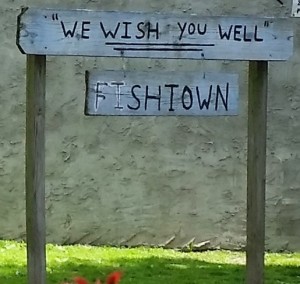 "WE WISH YOU WELL"
FISHTOWN